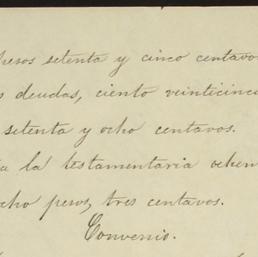 pesos setenta y cinco centavos
deudas, ciento veinticinco
setenta y ocho centavos.
la testamentaria ochen
ocho pesos, tres centavos.
Convenio.